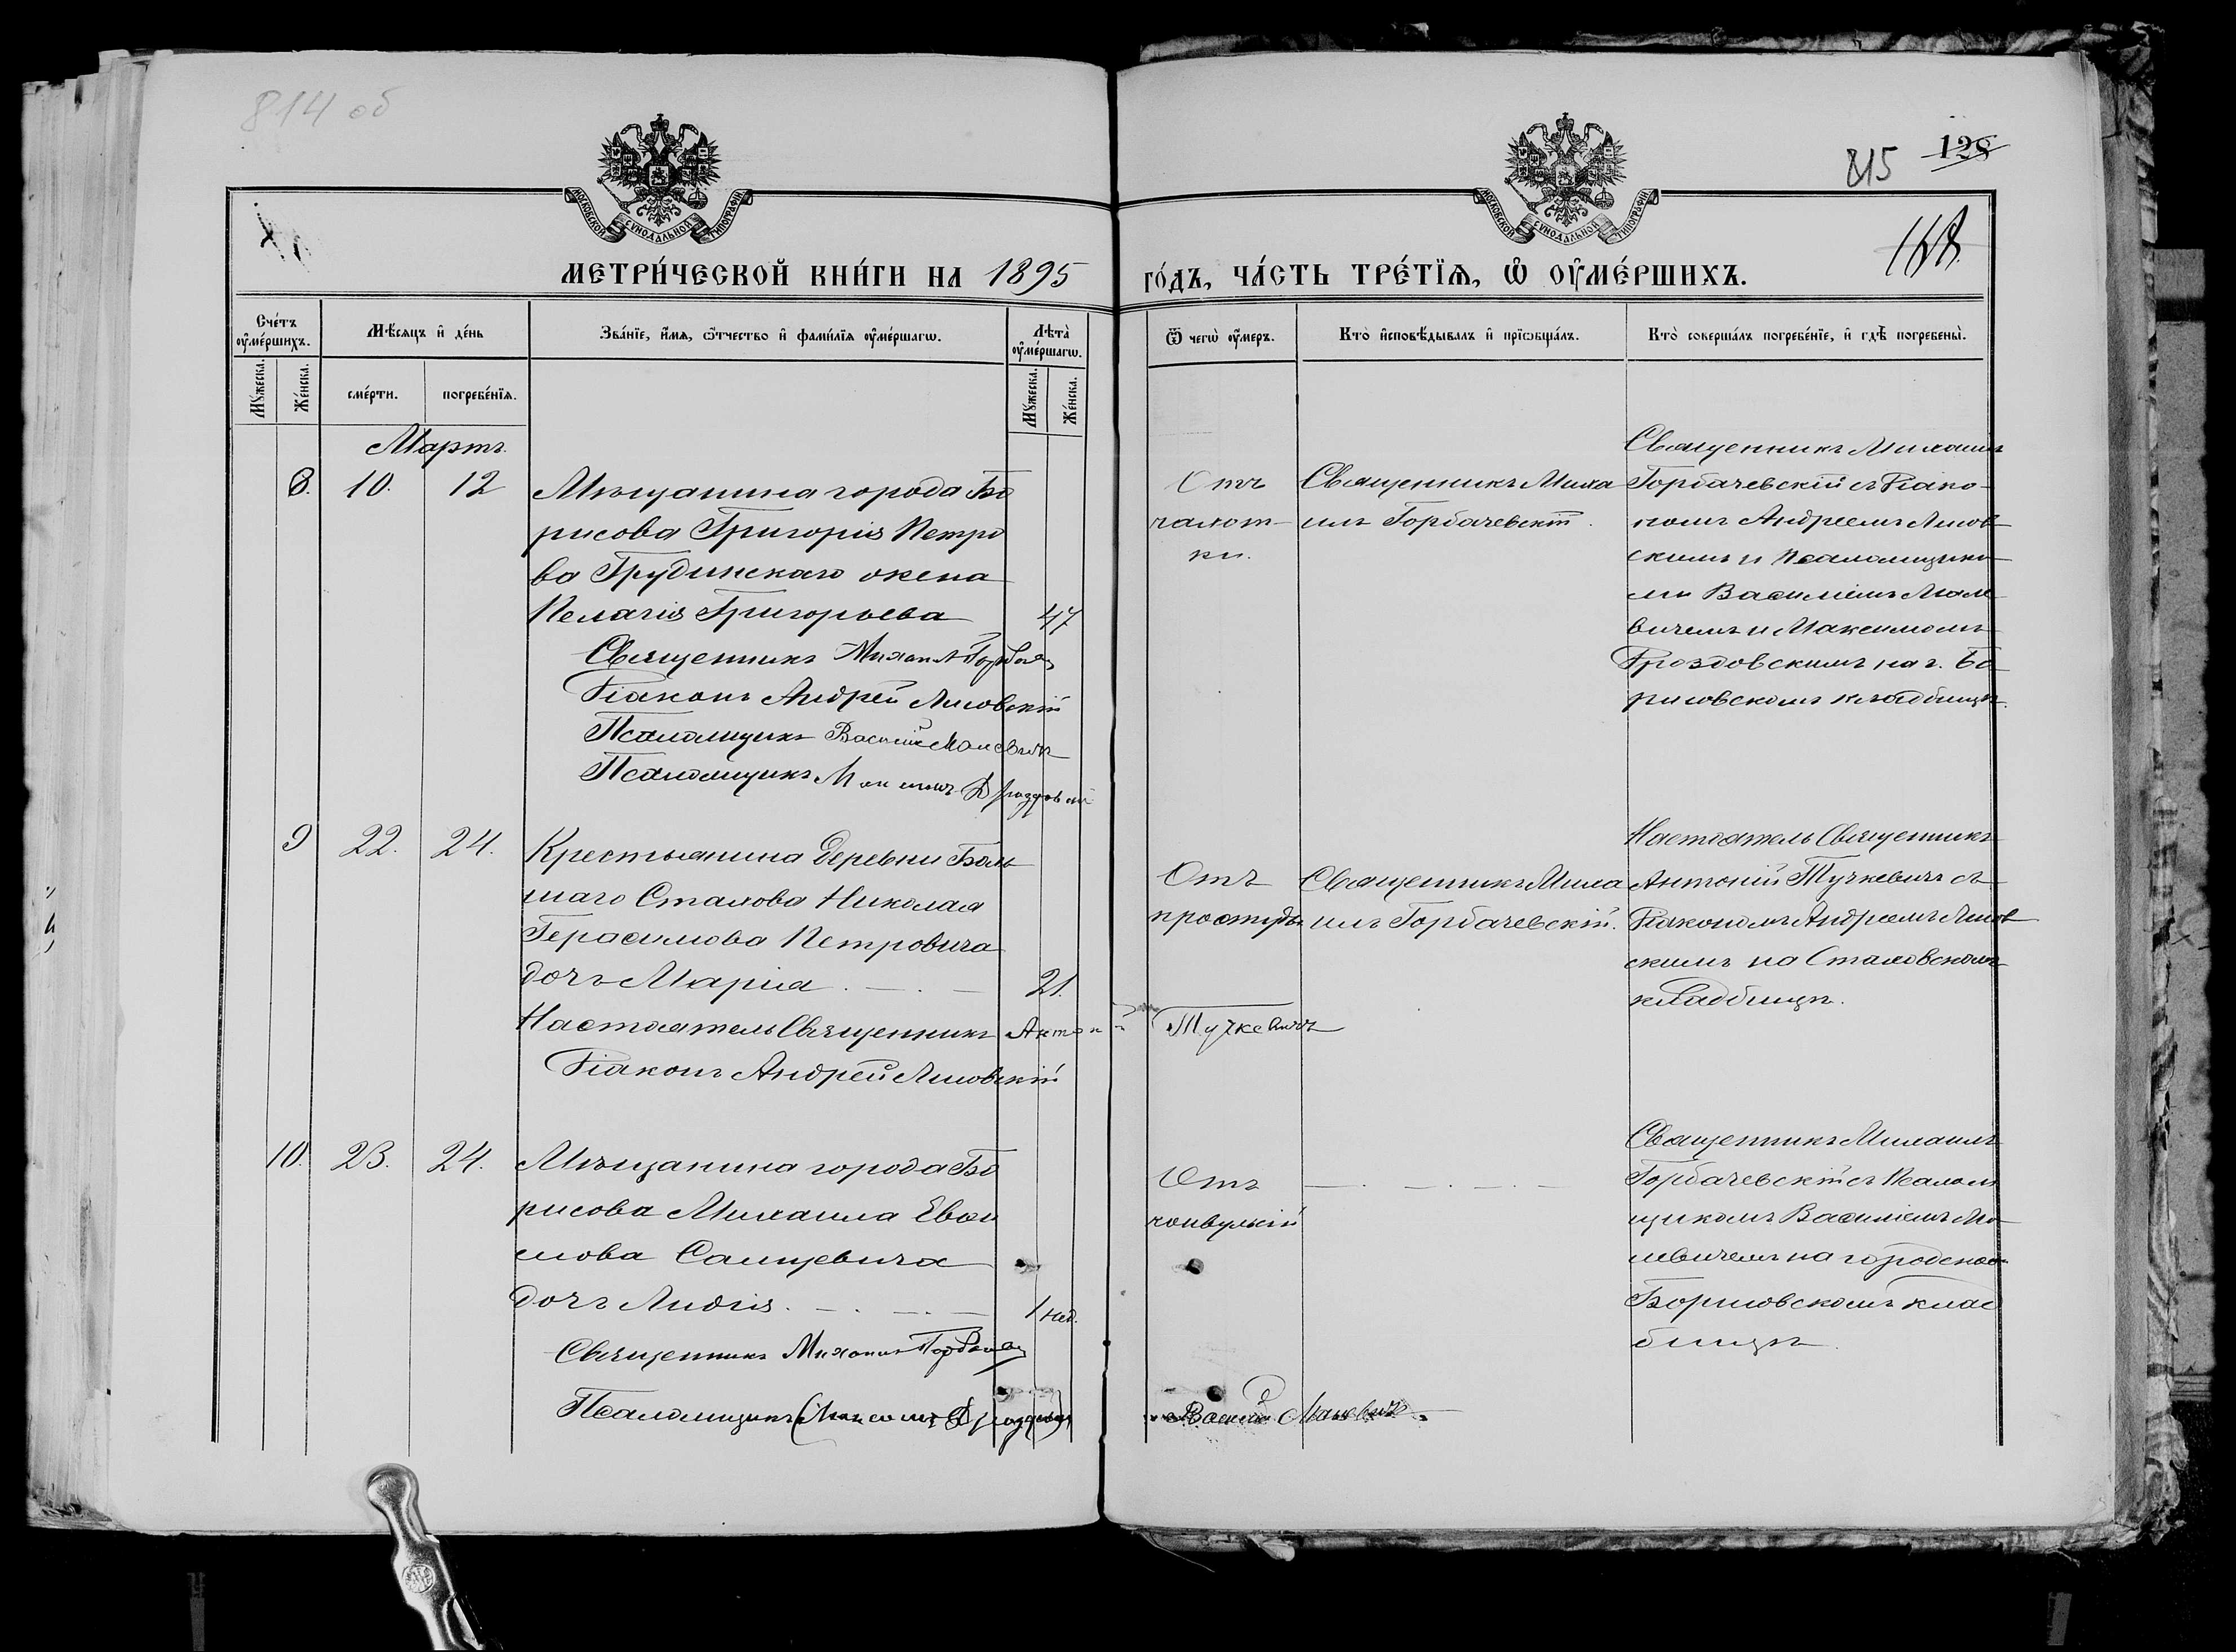 814 об
815
128
168
МОСКОВСКОЙ СѴНОДАЛЬНОЙ ТИПОГРАФІИ
МОСКОВСКОЙ СѴНОДАЛЬНОЙ ТИПОГРАФІИ
МЕТРИ́ЧЕСКОЙ КНИ́ГИ НА 1895
го́дъ, ЧА́СТЬ ТРЕ́ТЇѦ, Ѡ҆ ОУ҆МЕ́РШИХЪ.
Сче́тъ оу҆ме́ршихъ.
Мѣ́сяцъ и҆ де́нь
Зва́нїе, и҆́мѧ, ѻ҆́тчество и҆ фами́лїѧ оу҆ме́ршагѡ.
Лѣ́та̀ оу҆ме́ршагѡ.
Ѿ чегѡ̀ оу҆́меръ.
Кто̀ и҆сповѣ́дывалъ и҆ прїѻбща́лъ.
Кто̀ соверша́лъ погребе́нїе, и҆ гдѣ̀ погребены̀.
Мꙋ́жеска.
Же́нска.
сме́рти.
погребе́нїѧ.
Мꙋ́жеска.
Же́нска.
Мартъ.
8. 10. 12
Мѣщанина города Бо
рисова Григорія Петро
ва Грудинскаго жена
Пелагія Григорьева 47
Священникъ Михаилъ Горбач
Діаконъ Андрей Лисовскій
Псаломщикъ Василій Малевичъ
Псаломщикъ Максимъ Дроздовскій
Отъ
чахот-
ки.
Священникъ Миха
илъ Горбачевскій.
Священникъ Михаилъ
Горбачевскій съ Діако-
номъ Андреемъ Лисов
скимъ и Псаломщика
ми Василіемъ Мале
вичемъ и Максимомъ
Дроздовскимъ на г. Бо
рисовскомъ кладбищѣ.
9 22. 24.
Крестьянина деревни Боль
шаго Стахова Николая
Герасимова Петровича
дочь Марія 21.
Настоятель Священникъ Антоній Тучкевичъ
Діаконъ Андрей Лисовскій
Отъ
простуды
Священникъ Миха
илъ Горбачевскій.
Настоятель Священникъ
Антоній Тучкевичъ съ
Діакономъ Андреемъ Лисов
скимъ на Стаховскомъ
кладбищѣ.
10. 23. 24.
Мѣщанина города Бо
рисова Михаила
Санцевича
дочь Лидія. 1 нед.
Священникъ Михаилъ Горбачев
Псаломщикъ (Максимъ Дроздовск) Василій Малевичъ.
Отъ
конвульсій
Священникъ Михаилъ
Горбачевскій съ Псалом
щикомъ Василіемъ Ма
левичемъ на городском
Борисовскомъ клад
бищѣ.